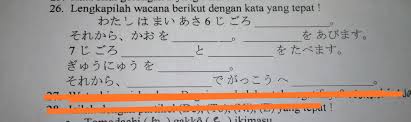 26. Lengkapilah wacana berikut dengan kata yang tepat !
わたしは まい あさ 6 じ ごろ ________.
それから、かおを ________. ________ を あびます。
7 じ ごろ ________ と ________ を たべます。
ぎゅうにゅう を ________.
それから、________ で がっこう へ ________.
27.
yang tepat !
Tomodachi ( to ) gakkō ( e ) ikimasu